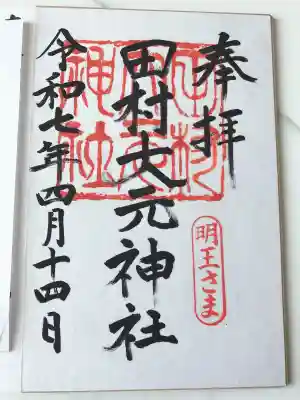 奉拝
明王さま
田村大元神社
令和七年四月十四日